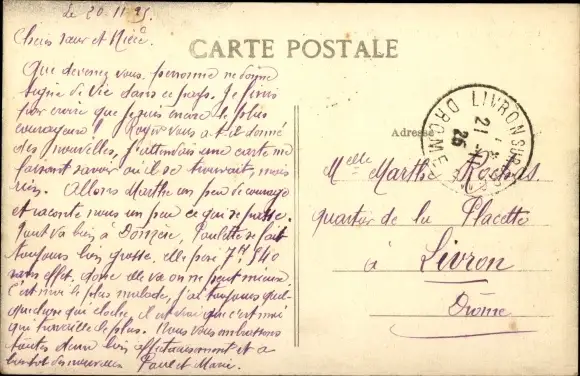 Le 20.11.25
Chers sœur et Nièce.
Que devenez vous personne ne donne
signe de vie dans ce pays. Je finis
par croire que je suis encore le plus
courageux! Roger vous a t'il donné
des nouvelles, j'attendais une carte me
faisant savoir où il se trouvait, mais
rien. Allons Marthe un peu de courage
et raconte nous un peu ce qui se passe.
Tout va bien à Donzère, Paulette se fait
toujours bien grosse, elle pèse 7K,940
sans effet, donc elle va on ne peut mieux.
C'est moi le plus malade, j'ai toujours quel-
que chose qui cloche, il est vrai que c'est moi
qui travaille le plus. Nous vous embrassons
toutes deux bien affectueusement et à
bientôt des nouvelles Paul et Marie
CARTE POSTALE
Adresse
LIVRON SUR
DROME
21
25
Melle Marthe
quartier de la Placette
à Livron
Drôme